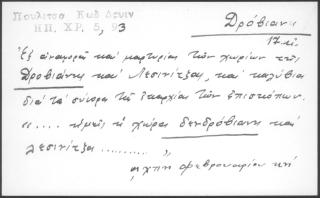 Πουλίτσα Κωδ Δρυιν
ΗΠ. ΧΡ. 5, 93
Δρόβιανη
17 αἰ.
Ἐξ ἀναφορᾶς καί μαρτυρίας τῶν χωρίων τῆς
Δροβιάνης καί Λεσινίτζας, καί καλύβια
διά τά σύνορα τῆς ἐπαρχίας τῶν ἐπισκόπων.
"..... ἡμεῖς ἡ χώρα δενδρόβιανη καί
λεσινίτζα .......... "
φεβρουαρίου κη